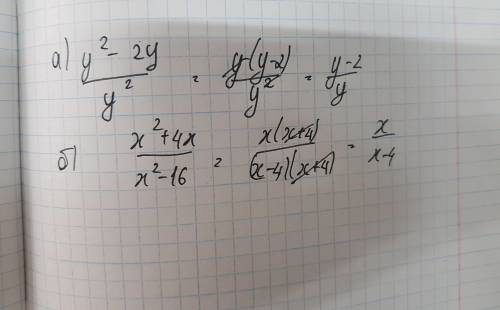 а) y² - 2y / y² = y(y-2) / y² = y-2 / y
б) x²+4x / x²-16 = x(x+4) / (x-4)(x+4) = x / x-4